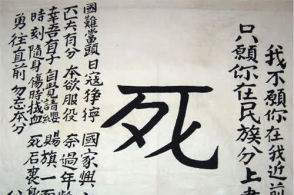 我不願你在我近前
只願你在民族分上
死
國難當頭 日寇猙獰 國家興
匹夫有分 本欲服役 奈過年
幸吾有子 自覺請纓 賜旗一
時刻隨身 傷時拭血 死后裹
勇往直前 勿忘本分